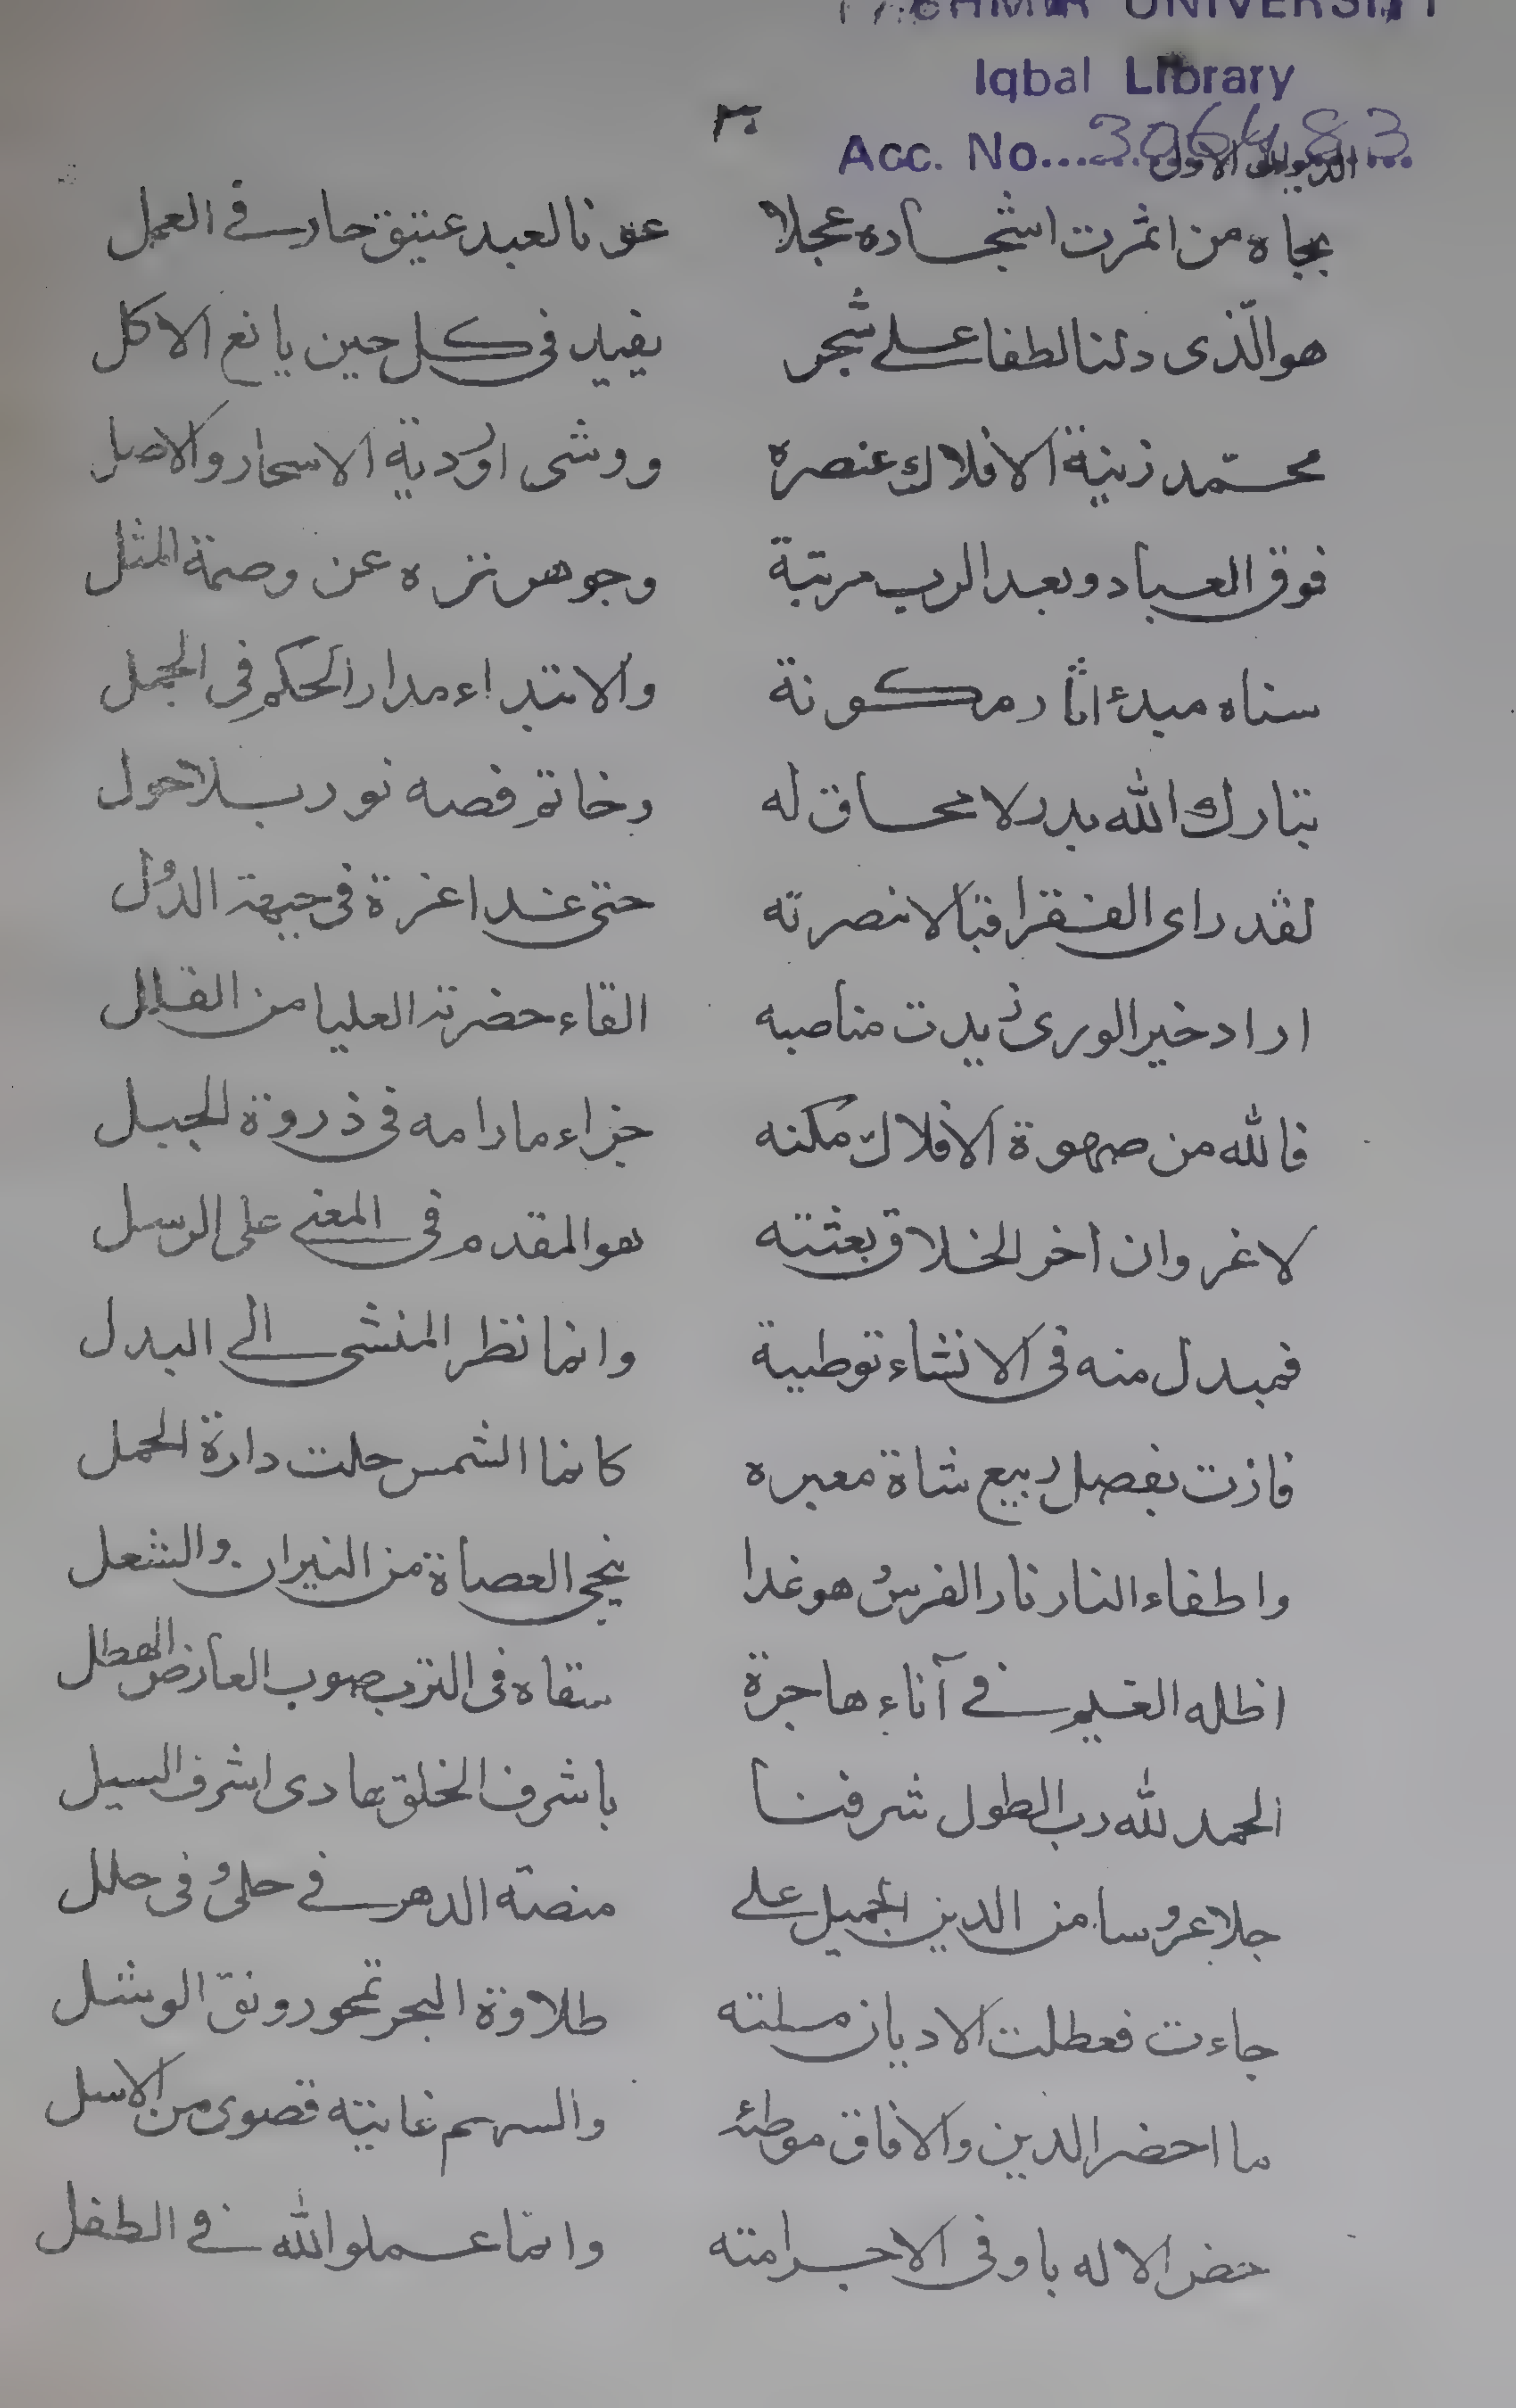 KASHMIR UNIVERSITY
Iqbal Library
Acc. No. 306483
٣٠ الديوان الاول
بجاه من اثمرت اشجاره عجلا عونا لعبد عتيق حار في العمل
هو الّذى دلنا لطفا على شجر يفيد فى كل حين يانع الاكل
محمّد زينة الافلاك عنصره ووشى اردية الاسحار والاصل
فوق العباد وبعد الرب مرتبة وجوهر نزه عن وصمة المثل
سناه مبدء اثار مكونة والابتداء مدار الحكم فى الجمل
تبارك الله بدر لا محاق له وخاتم فصه نور بلا حول
لقد راى الفقرا قبالا نصرته حتى غدا غرة فى جبهة الدول
اراد خير الورى زيدت مناصبه القاء حضرته العليا من القلل
فالله من صهوة الافلاك مكنه جزاء ما رامه فى ذروة الجبل
لا غروان اخر الخلاق بعثته هو المقدم فى المغنى على الرسل
فمبدل منه فى الانشاء توطية وانما نظر المنشى الى البدل
فازت بفصل ربيع شاة معبره كانما الشمس حلت دارة الحمل
واطفاء النار نار الفرس هو غدا ينجى العصاة من النيران والشعل
اظله الغيم في آناء هاجرة سقاه فى الترب صوب العارض الهطل
الحمد لله رب الطول شرفنا باشرف الخلق هادى اشرف السبل
جلا عروسا من الدين الجميل على منصة الدهر في حلى وفى حلل
جاءت فعطلت الاديان ملته طلاوة البحر تمحو رونق الوشل
ما احضر الدين والافاق موطئه والسهم غايته قصوى من الاسل
خص الاله باوفى الاجر امته وانما عملوا لله في الطفل